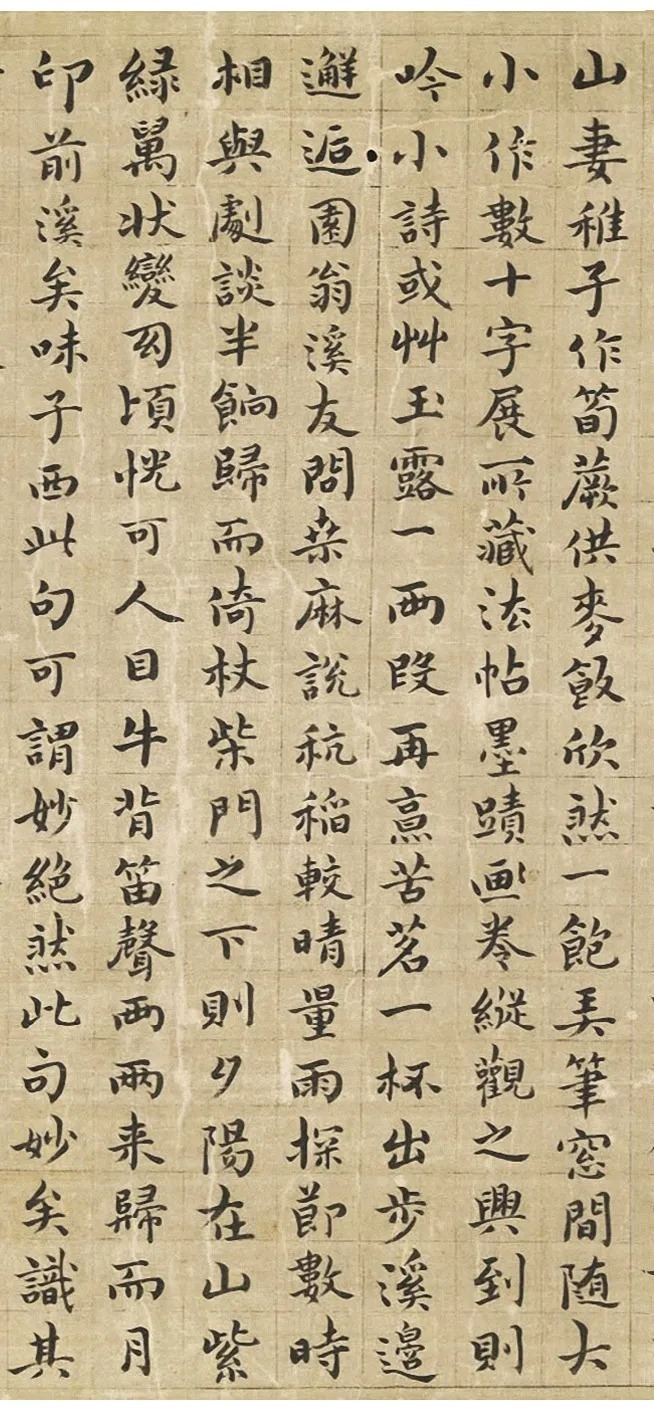 山妻稚子作筍蕨供麥飯欣然一飽弄筆窓間随大
小作數十字展所藏法帖墨蹟画卷縱觀之興到則
吟小詩或艸玉露一兩段再烹苦茗一杯出步溪邉
邂逅園翁溪友問桒麻說秔稻較晴量雨探節數時
相與劇談半餉歸而倚杖柴門之下則夕陽在山紫
緑萬状變幻頃恍可人目牛背笛聲兩兩来歸而月
印前溪矣味子西此句可謂妙絕然此句妙矣識其